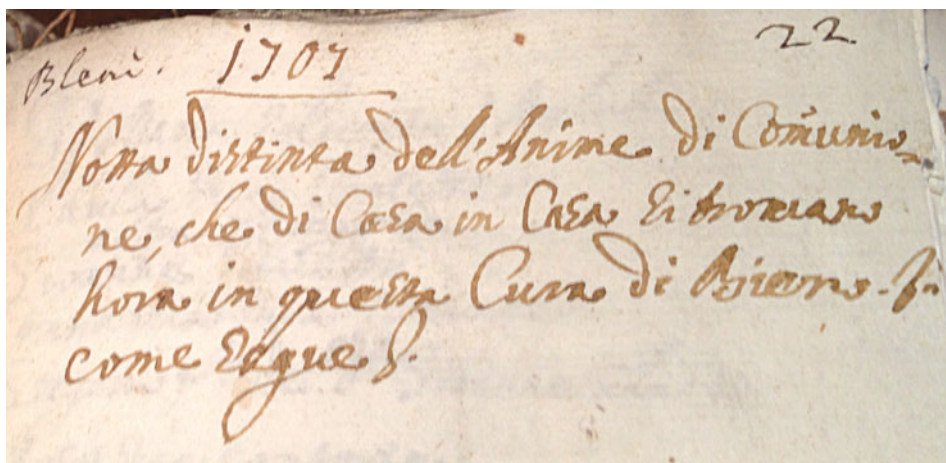 Bleni. 1707 22
Notta distinta dell'Anime di Comunio-
ne, che di Casa in Casa si trovano
hora in questa Cura di
come segue